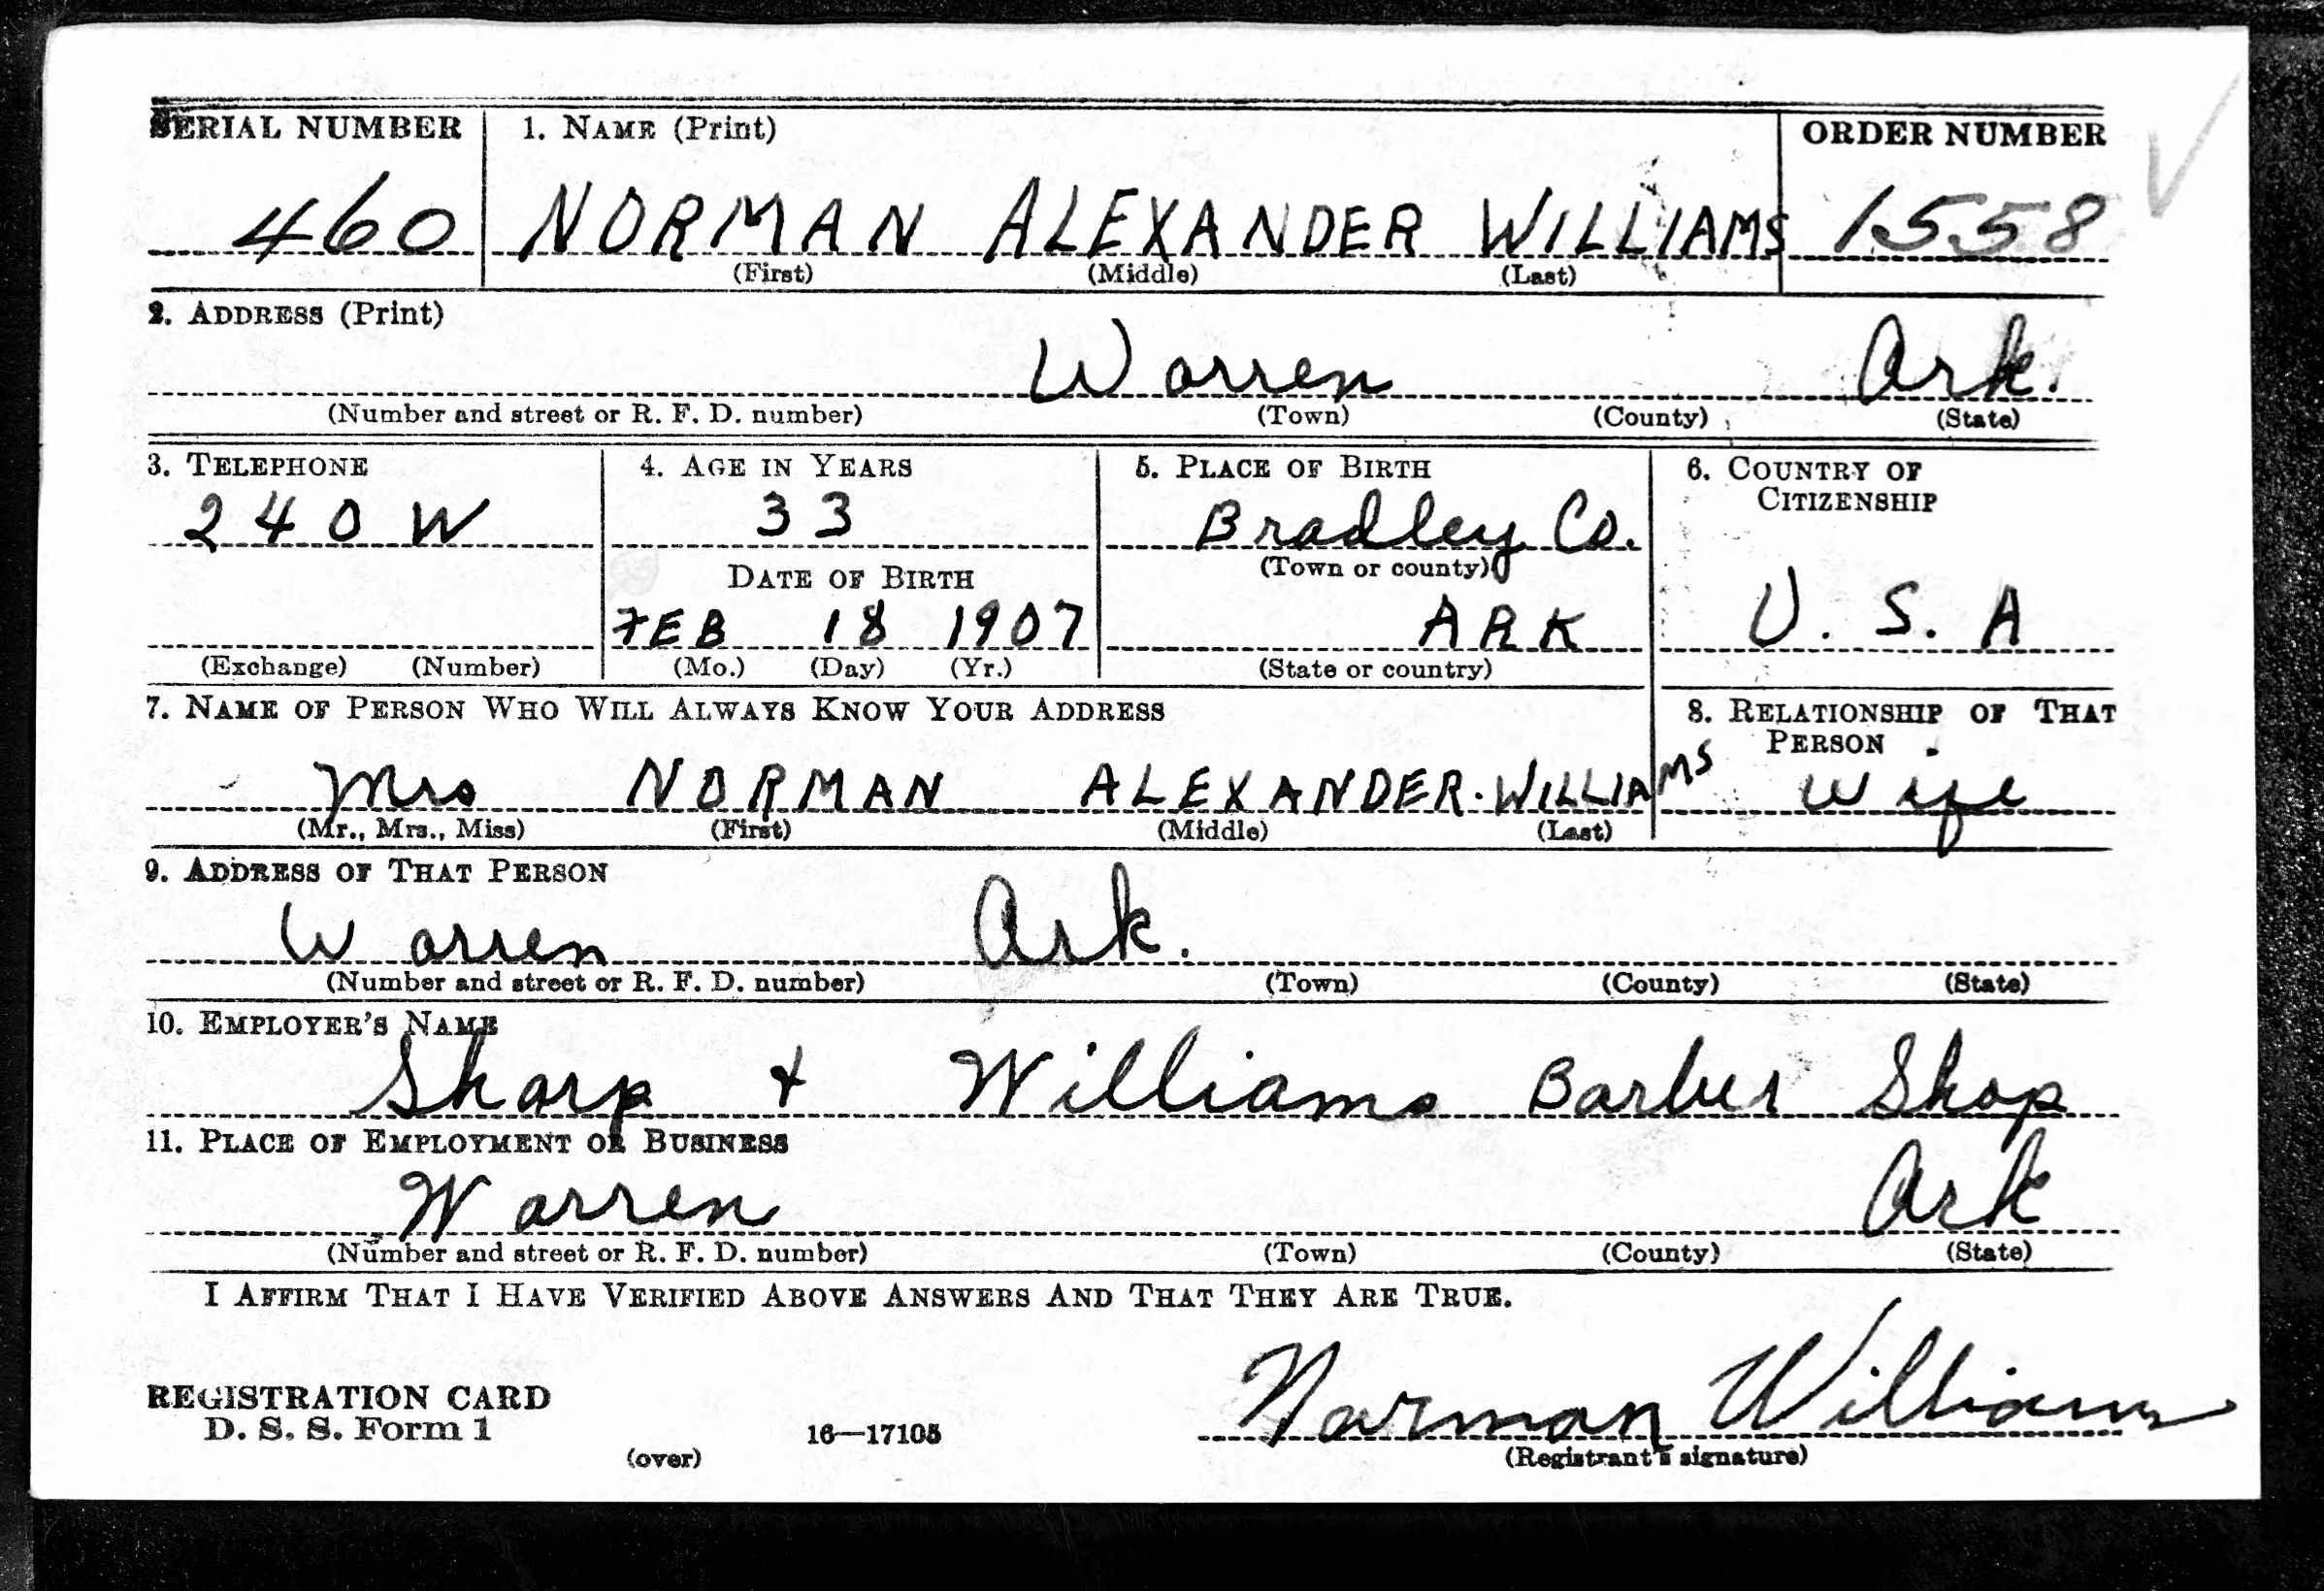 SERIAL NUMBER 1. NAME (Print) ORDER NUMBER
460 NORMAN ALEXANDER WILLIAMS 1558
(First) (Middle) (Last)
2. ADDRESS (Print)
Warren Ark.
(Number and street or R. F. D. number) (Town) (County) (State)
3. TELEPHONE 4. AGE IN YEARS 5. PLACE OF BIRTH 6. COUNTRY OF
CITIZENSHIP
240 W 33 Bradley Co.
(Town or county)
DATE OF BIRTH
FEB 18 1907 ARK U. S. A
(Exchange) (Number) (Mo.) (Day) (Yr.) (State or country)
7. NAME OF PERSON WHO WILL ALWAYS KNOW YOUR ADDRESS 8. RELATIONSHIP OF THAT
PERSON
Mrs NORMAN ALEXANDER. WILLIAMS wife
(Mr., Mrs., Miss) (First) (Middle) (Last)
9. ADDRESS OF THAT PERSON
Warren Ark.
(Number and street or R. F. D. number) (Town) (County) (State)
10. EMPLOYER'S NAME
Sharp + Williams Barber Shop
11. PLACE OF EMPLOYMENT OR BUSINESS
Warren Ark
(Number and street or R. F. D. number) (Town) (County) (State)
I AFFIRM THAT I HAVE VERIFIED ABOVE ANSWERS AND THAT THEY ARE TRUE.
REGISTRATION CARD
D. S. S. Form 1 16—17105 Norman Williams
(over) (Registrant's signature)